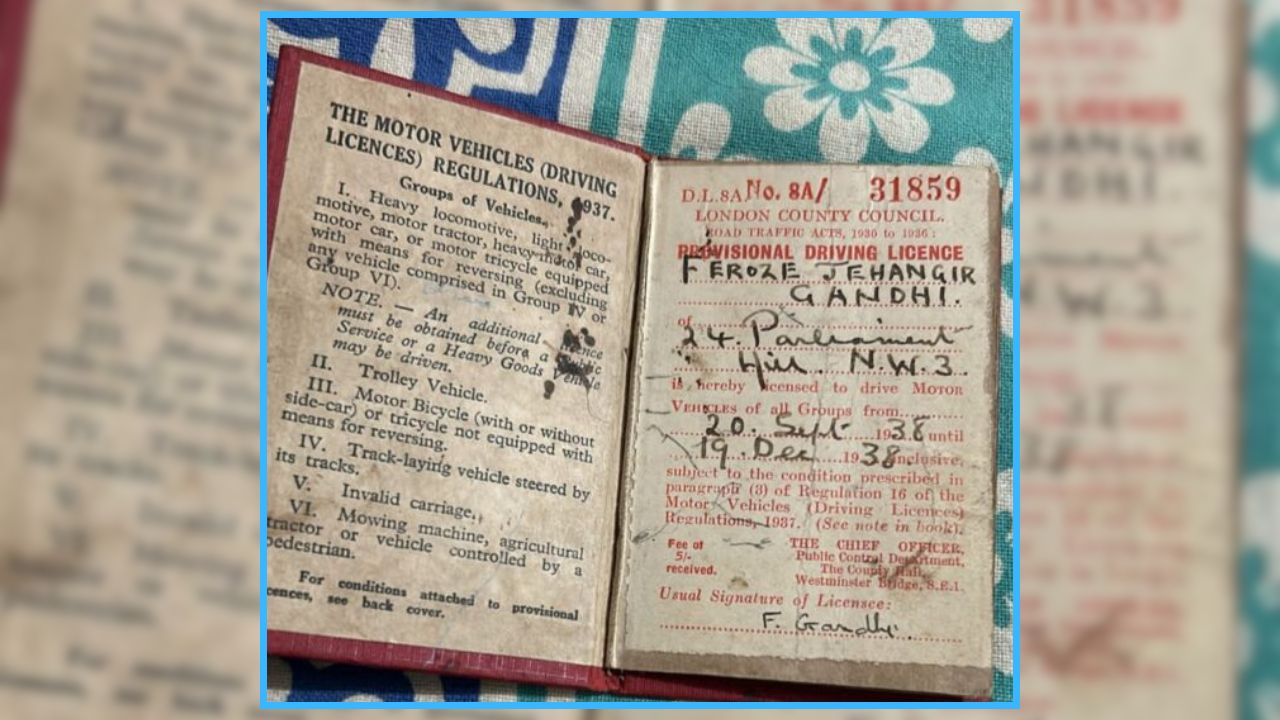 THE MOTOR VEHICLES (DRIVING
LICENCES) REGULATIONS, 1937.
Groups of Vehicles.
I. Heavy locomotive, light loco-
motive, motor tractor, heavy motor car,
motor car, or motor tricycle equipped
with means for reversing (excluding
any vehicle comprised in Group IV or
Group VI).
NOTE. — An additional
must be obtained before a
Service or a Heavy Goods Vehicle
may be driven.
II. Trolley Vehicle.
III. Motor Bicycle (with or without
side-car) or tricycle not equipped with
means for reversing.
IV. Track-laying vehicle steered by
its tracks.
V. Invalid carriage.
VI. Mowing machine, agricultural
tractor or vehicle controlled by a
pedestrian.
For conditions attached to provisional
cences, see back cover.
D.L.8A No. 8A/ 31859
LONDON COUNTY COUNCIL.
ROAD TRAFFIC ACTS, 1930 to 1936:
PROVISIONAL DRIVING LICENCE
FEROZE JEHANGIR
GANDHI.
of
24. Parliament
Hill. N.W.3.
is hereby licensed to drive MOTOR
VEHICLES of all Groups from
20. Sept 1938 until
19. Dec 1938 inclusive,
subject to the condition prescribed in
paragraph (3) of Regulation 16 of the
Motor Vehicles (Driving Licences)
Regulations, 1937. (See note in book).
Fee of
5/-
received.
THE CHIEF OFFICER,
Public Control Department,
The County Hall,
Westminster Bridge, S.E.1.
Usual Signature of Licensee:
F. Gandhi.